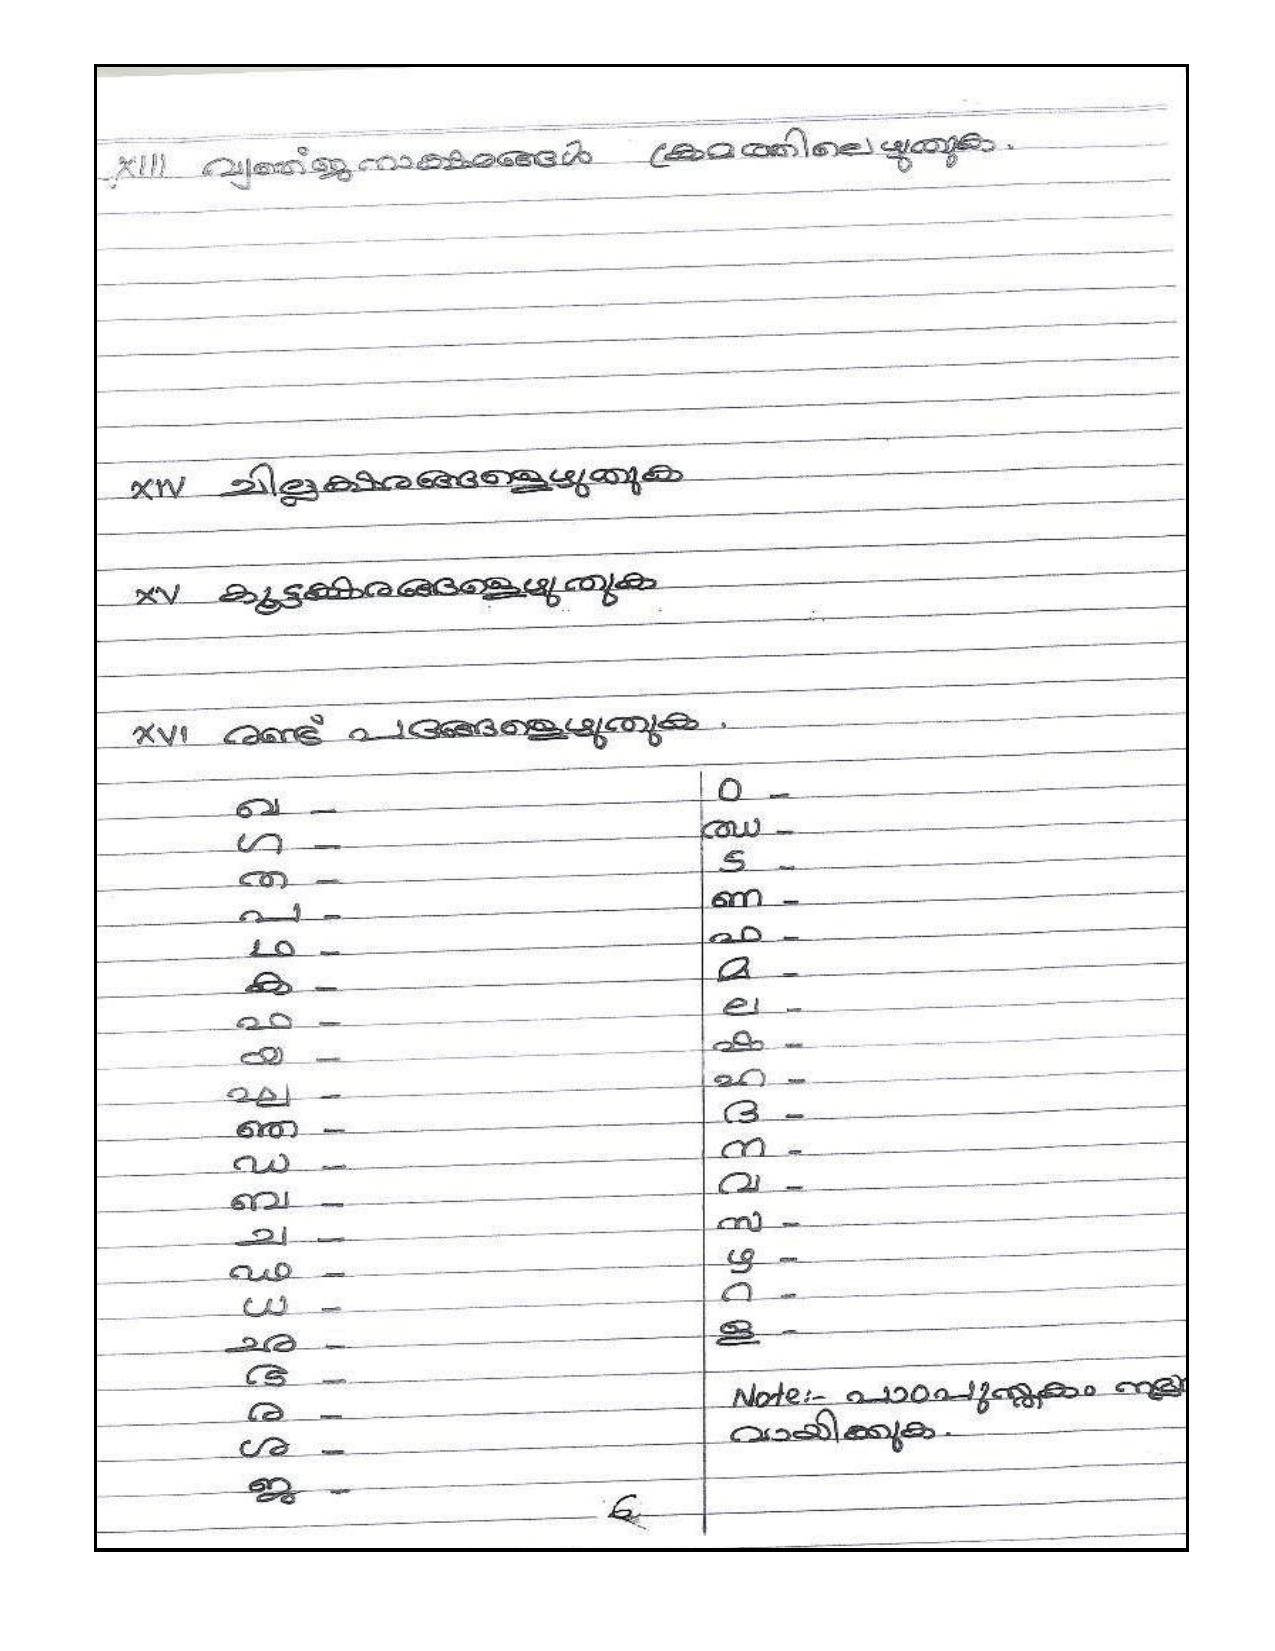 XIII വ്യഞ്ജനാക്ഷരങ്ങൾ ക്രമത്തിലെഴുതുക.
XIV ചില്ലക്ഷരങ്ങളെഴുതുക
XV കൂട്ടക്ഷരങ്ങളെഴുതുക
XVI രണ്ട് പദങ്ങളെഴുതുക.
ഖ –
ഗ –
ത –
പ –
ഠ –
ക –
ഫ –
യ –
ഛ –
ഞ –
ഡ –
ബ –
ച –
ഢ –
ധ –
ഭ –
ര –
ശ –
ജ –
ഠ –
ഝ –
ട –
ണ –
ഫ –
മ –
ല –
ഷ –
ഹ –
ദ –
ന –
വ –
സ –
ഴ –
റ –
ള –
Note:- പാഠപുസ്തകം
വായിക്കുക.
6